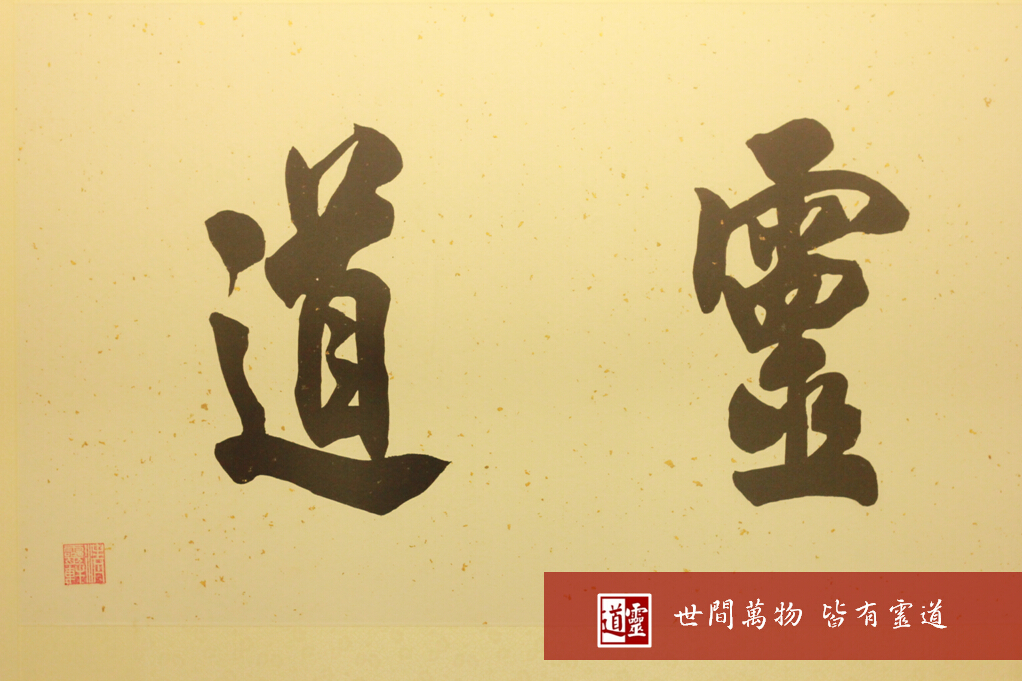 靈道
靈道
世間萬物 皆有靈道